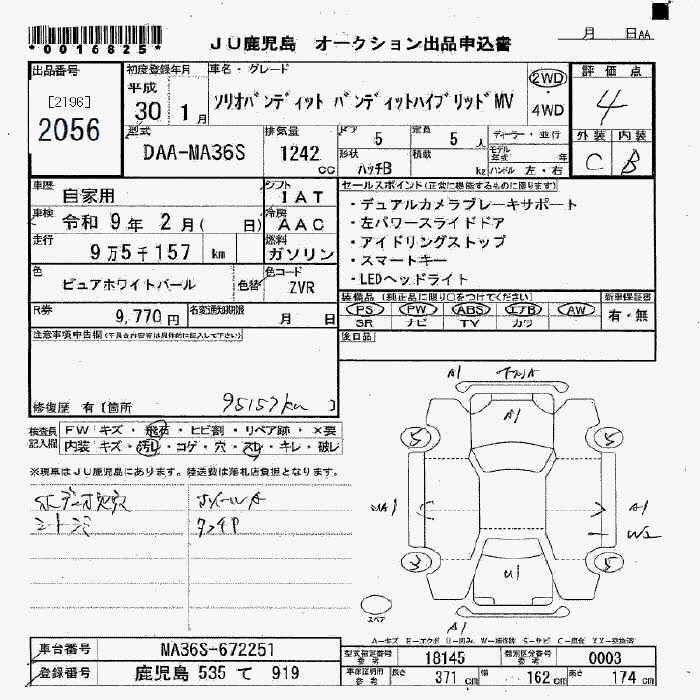 *0016825*
JU鹿児島 オークション出品申込書
月 日AA
出品番号
[2196]
2056
初度登録年月
平成
30 1月
車名・グレード
ソリオバンディット バンディットハイブリッドMV
2WD
・
4WD
評価点
4
外装 内装
C B
型式
DAA-MA36S
排気量
1242
cc
ドア
5
定員
5 人
形状
ハッチB
積載
kg
ディーラー・並行
モデル年式 年
ハンドル 左・右
車歴
自家用
車検
令和 9年 2月( 日)
走行
9万5千157 km
シフト
IAT
冷房
AAC
燃料
ガソリン
色
ピュアホワイトパール
色替
色コード
ZVR
R券
9,770 円
名変通知期限
月 日
セールスポイント(正常に機能するものに限ります)
・デュアルカメラブレーキサポート
・左パワースライドドア
・アイドリングストップ
・スマートキー
・LEDヘッドライト
装備品(純正品に限り○をつけてください)
PS PW ABS エアB AW
SR ナビ TV カワ
新車保証書
有・無
後日品
注意事項申告欄(不具合内容等は具体的に記入して下さい)
修復歴 有 [箇所 95157km ]
検査員記入欄
FW キズ・飛石・ヒビ割・リペア跡・×要
内装 キズ・汚れ・コゲ・穴・スレ・キレ・破レ
※現車はJU鹿児島にあります。陸送費は落札店負担となります。
A1
A1
5 5
A1
W2
3 5
U1
スペア
A-キズ E-エクボ U-凹み W-補修跡 S-サビ C-腐食 XX-交換済
車台番号
MA36S-672251
登録番号
鹿児島 535 て 919
型式指定番号
参考
18145
類別区分番号
参考
0003
車庫証明用
参考
長さ 371 cm
幅 162 cm
高さ 174 cm